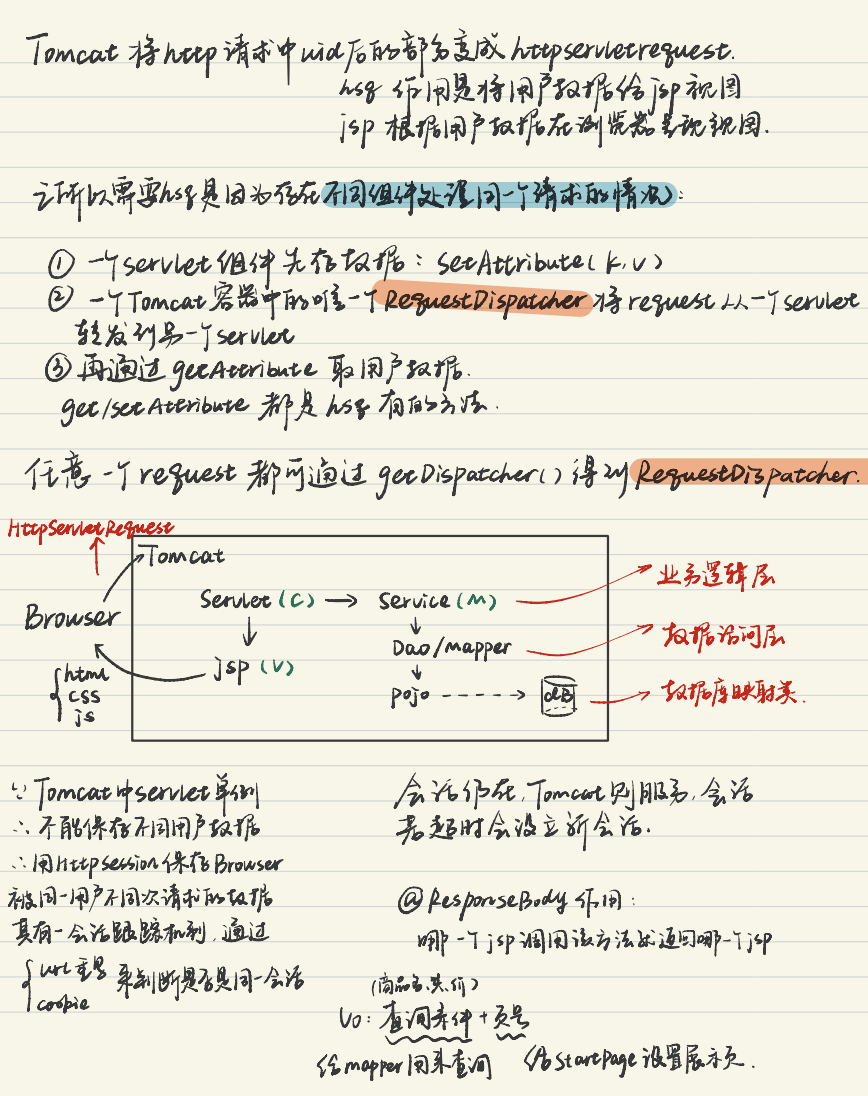 Tomcat 将http请求中uid后的部分变成httpservletrequest.
hsq 作用是将用户数据给jsp视图
jsp 根据用户数据在浏览器呈现视图.
之所以需要hsq是因为存在不同组件处理同一个请求的情况:
① 一个servlet组件先存数据: setAttribute(k,v)
② 一个Tomcat容器中的唯一个RequestDispatcher将request从一个servlet
转发到另一个servlet
③ 再通过getAttribute取用户数据.
get/set Attribute 都是hsq有的方法.
任意一个request都可通过getDispatcher()得到RequestDispatcher.
HttpServletRequest
Tomcat
Servlet (C) → Service (M) 业务逻辑层
Browser
Dao/mapper 数据访问层
jsp (V)
html
css
js
pojo dB 数据库映射类.
∵ Tomcat中servlet单例
∴ 不能保存不同用户数据
∴ 用Httpsession保存Browser
被同一用户不同次请求的数据
具有一会话跟踪机制,通过
url重写
cookie
来判断是否是同一会话
会话仍在,Tomcat则服务,会话
若超时会设立新会话.
@ResponseBody 作用:
哪一个jsp调用该方法就返回哪一个jsp
(商品名,类,价)
Vo: 查询条件+页号
给mapper用来查询 给StartPage设置展示页.